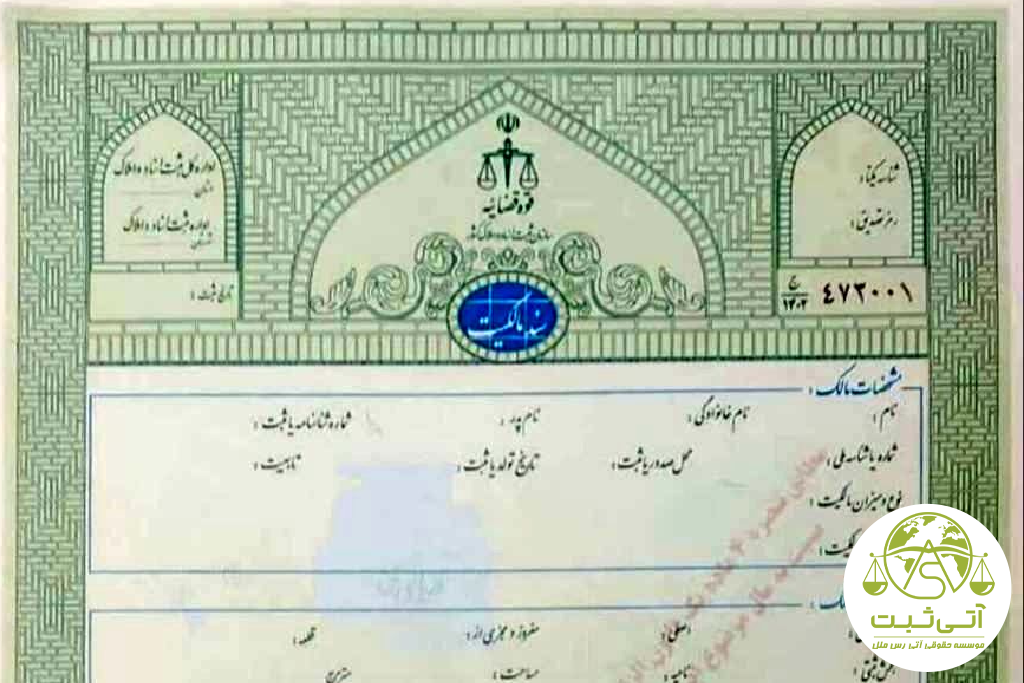 قوه قضائیه
سازمان ثبت اسناد و املاک کشور
سند مالکیت
شناسه یکتا :
رمز تصدیق :
ج
۱۴۰۲
۴۷۳۰۰۱
اداره کل ثبت اسناد و املاک
استان
اداره ثبت اسناد و املاک
تاریخ ثبت :
مشخصات مالک :
نام : نام خانوادگی : نام پدر : شماره شناسنامه یا ثبت :
شماره یا شناسه ملی : محل صدور یا ثبت : تاریخ تولد یا ثبت : تابعیت :
نوع و میزان مالکیت :
مالکیت :
اصلی : مفروز و مجزی از : قطعه :
بخش ثبتی : ناحیه : مساحت :
آتی ثبت
موسسه حقوقی آتی رس ملل